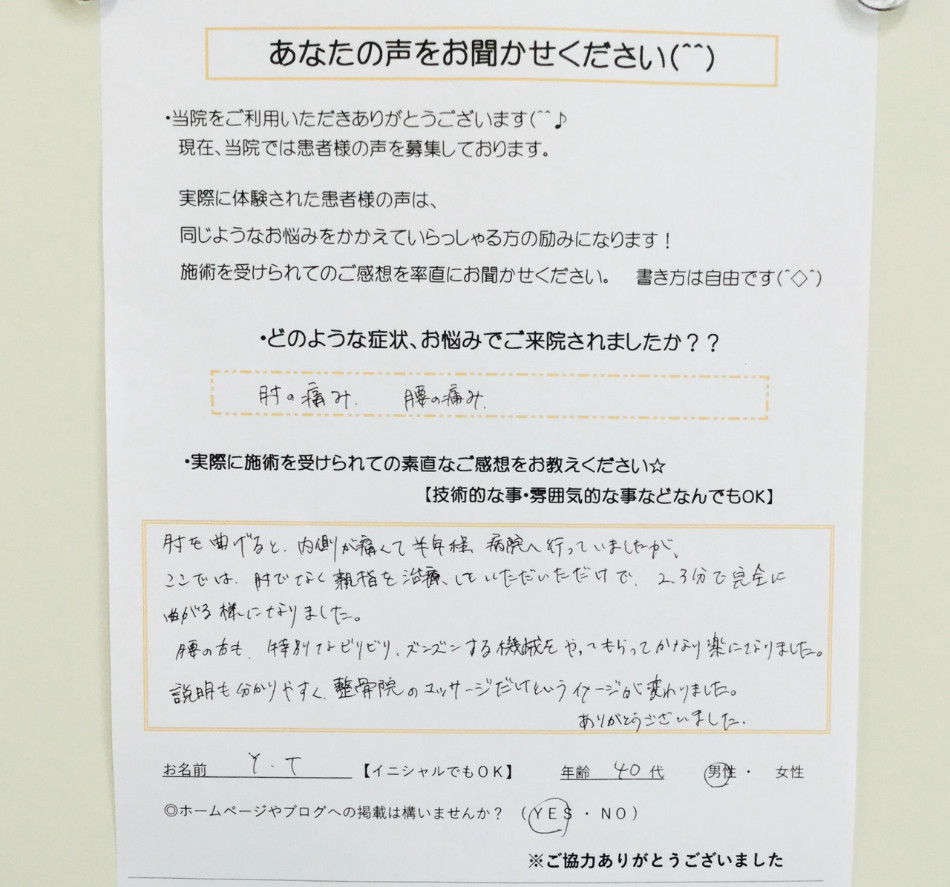 あなたの声をお聞かせください(^^)
・当院をご利用いただきありがとうございます(^^♪
現在、当院では患者様の声を募集しております。
実際に体験された患者様の声は、
同じようなお悩みをかかえていらっしゃる方の励みになります！
施術を受けられてのご感想を率直にお聞かせください。 書き方は自由です(^◇^)
・どのような症状、お悩みでご来院されましたか？？
肘の痛み. 腰の痛み.
・実際に施術を受けられての素直なご感想をお教えください☆
【技術的な事・雰囲気的な事などなんでもOK】
肘を曲げると、内側が痛くて半年程、病院へ行っていましたが、
ここでは、肘でなく親指を治療していただいただけで、2、3分で完全に
曲がる様になりました。
腰の方も、特別なビリビリ、ズンズンする機械をやってもらってかなり楽になりました。
説明も分かりやすく、整骨院のマッサージだけというイメージが変わりました。
ありがとうございました.
お名前 Y.T 【イニシャルでもOK】 年齢 40 代 男性 ・ 女性
◎ホームページやブログへの掲載は構いませんか？ （ YES ・ NO ）
※ご協力ありがとうございました